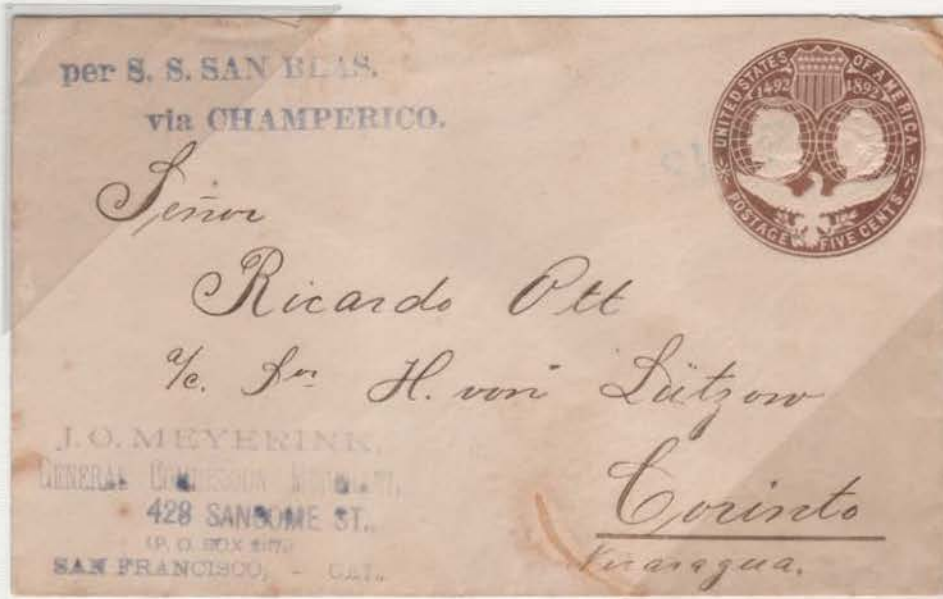 per S. S. SAN BLAS.
via CHAMPERICO.
UNITED STATES OF AMERICA.
1492 1892
POSTAGE FIVE CENTS.
Señor
Ricardo Ott
a/c. Sor H. von Lützow
Corinto
Nicaragua.
J. O. MEYERINK,
GENERAL COMMISSION MERCHANT,
428 SANSOME ST.,
(P. O. BOX
SAN FRANCISCO, - CAL.